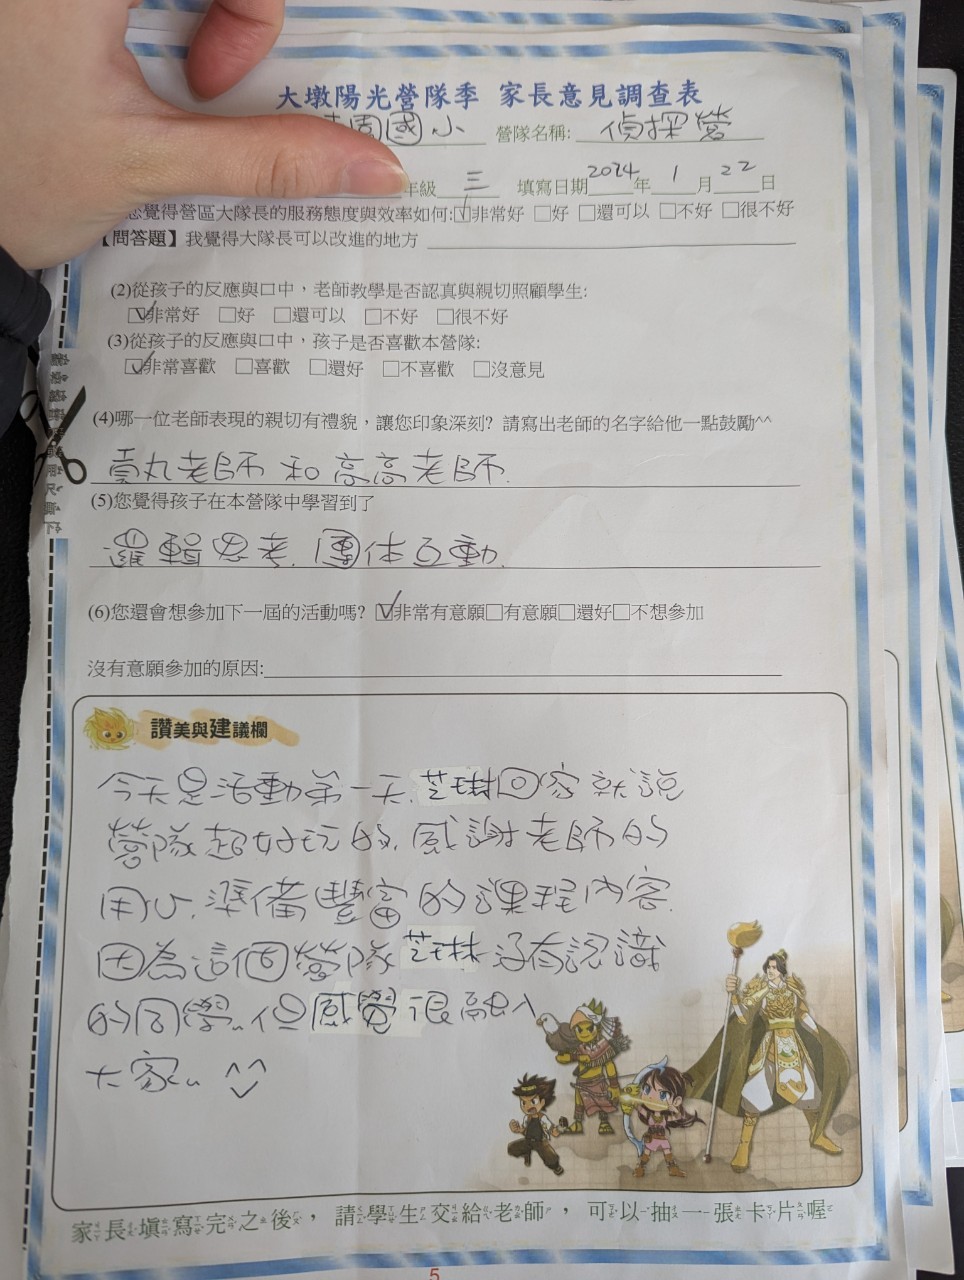 大墩陽光營隊季 家長意見調查表
園國小 營隊名稱: 偵探營
年級 三 填寫日期 2024 年 1 月 22 日
您覺得營區大隊長的服務態度與效率如何:☑非常好 □好 □還可以 □不好 □很不好
【問答題】我覺得大隊長可以改進的地方
(2)從孩子的反應與口中，老師教學是否認真與親切照顧學生:
☑非常好 □好 □還可以 □不好 □很不好
(3)從孩子的反應與口中，孩子是否喜歡本營隊:
☑非常喜歡 □喜歡 □還好 □不喜歡 □沒意見
(4)哪一位老師表現的親切有禮貌，讓您印象深刻? 請寫出老師的名字給他一點鼓勵^^
貢丸老師 和 高高老師.
(5)您覺得孩子在本營隊中學習到了
邏輯思考. 團体互動.
(6)您還會想參加下一屆的活動嗎? ☑非常有意願□有意願□還好□不想參加
沒有意願參加的原因:
讚美與建議欄
今天是活動第一天. 芝琳回家就說
營隊超好玩的. 感謝老師的
用心. 準備豐富的課程內容.
因為這個營隊芝琳沒有認識
的同學.. 但感覺很融入
大家.. ^^
家長填寫完之後，請學生交給老師，可以抽一張卡片喔
5